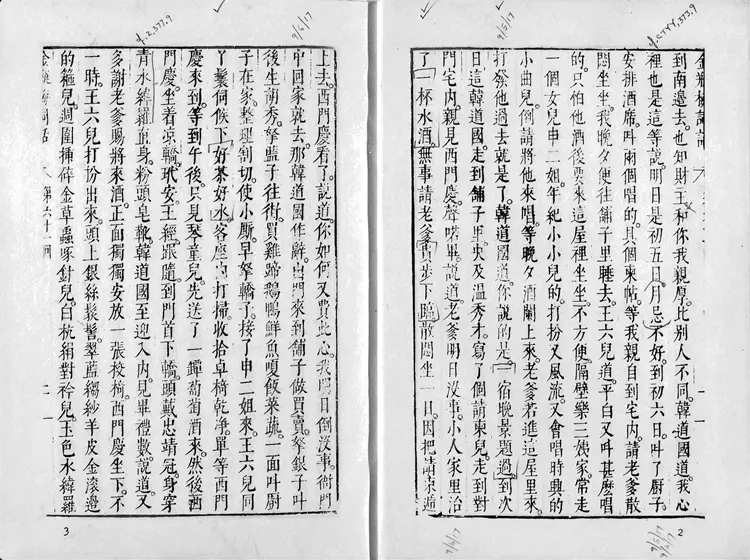 金瓶梅詞話
到南邊去。也知財主和你我親厚。比別人不同。韓道國道。我心
裡也是這等說。明日是初五日。月忌不好。到初六日。叫了厨子。
安排酒席。叫兩個唱的。具個柬帖。等我親自到宅内。請老爹散
悶坐坐。我晚夕便徃舖子里睡去。王六兒道。平白又叫甚麽唱
的。只怕他酒後要來這屋裡坐坐。不方便。隔壁樂三嫂家。常走
一個女兒申二姐。年紀小小兒的。打扮又風流。又會唱時興的
小曲兒。倒請將他來唱。等晚夕酒闌上來。老爹若進這屋里來。
打發他過去就是了。韓道國道。你說的是。一宿晚景題過。到次
日。這韓道國走到舖子里。央及温秀才。寫了個請柬兒。走到對
門宅内。親見西門慶。聲喏畢。說道。老爹明日沒事。小人家里治
了一杯水酒。無事請老爹貴步下臨。散悶坐一日。因把請柬遞
2
上去。西門慶看了。說道。你如何又費此心。我明日倒沒事。衙門
中回家就去。那韓道國作辭出門。來到舖子做買賣。拏銀子叫
後生胡秀。拏籃子徃街。買雞蹄鵝鴨鮮魚嗄飯菜蔬。一面叫厨
子在家。整理割切。使小厮早拏轎子。接了申二姐來。王六兒同
丫鬟伺候下好茶好水。客座内打掃。收拾卓椅乾净。單等西門
慶來到。等到午後。只見琴童兒。先送了一罈葡萄酒來。然後西
門慶。坐着凉轎。玳安王經跟隨。到門首下轎。頭戴忠靖冠。身穿
青水緯羅直身。粉頭皂靴。韓道國至迎入内。見畢禮數。說道。又
多謝老爹賜將來酒。正面獨獨安放一張校椅。西門慶坐下。不
一時。王六兒打扮出來。頭上銀絲䯼髻。翠藍縐紗羊皮金滚邊
的箍兒。週圍插碎金草蟲啄針兒。白杭絹對衿兒。玉色水緯羅
金瓶梅詞話 第六十一囘 二
3